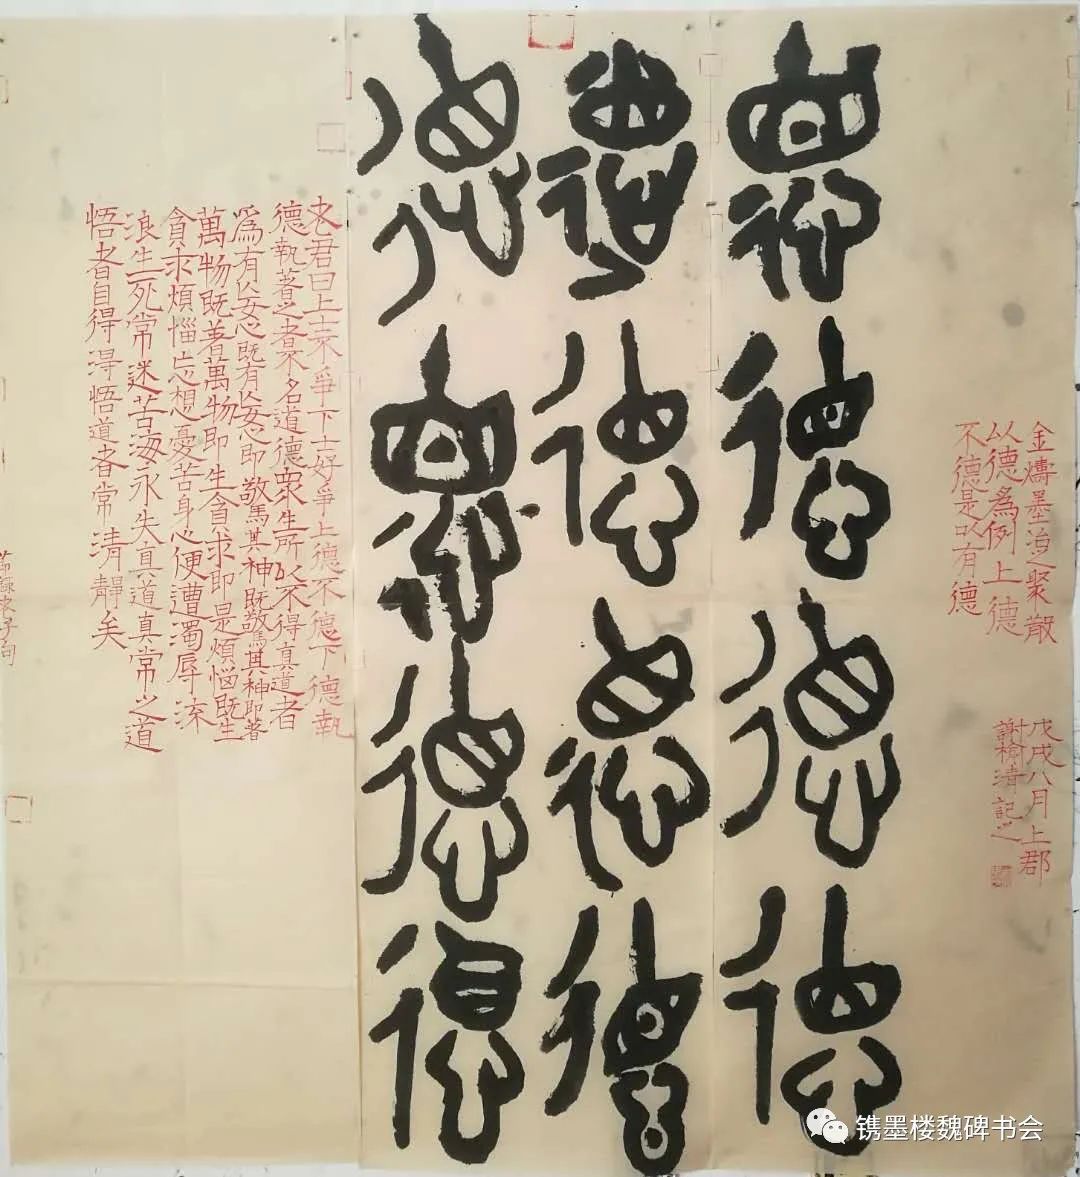 金鑄墨之聚散
以德為例上德
不德是以有德
戊戌八月上郡
謝榆清記之
德德德德
德德德德
德德德德
老君曰上士不爭下士好爭上德不德下德執
德執著之者不名道德眾生所以不得真道者
為有妄心既有妄心即驚其神既驚其神即著
萬物既著萬物即生貪求即是煩惱既生
貪求煩惱忘想憂苦身心便遭濁辱流
浪生死常迷苦海永失真道真常之道
悟者自得得悟道者常清靜矣
镌墨楼魏碑书会